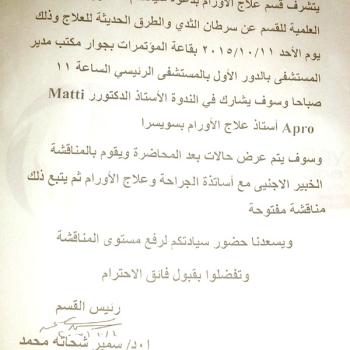 يتشرف قسم علاج الأورام بدعوة
العلمية للقسم عن سرطان الثدي والطرق الحديثة للعلاج وذلك
يوم الأحد ٢٠١٥/١٠/١١ بقاعة المؤتمرات بجوار مكتب مدير
المستشفى بالدور الأول بالمستشفى الرئيسي الساعة ١١
صباحا وسوف يشارك في الندوة الأستاذ الدكتورر Matti
Apro أستاذ علاج الأورام بسويسرا
وسوف يتم عرض حالات بعد المحاضرة ويقوم بالمناقشة
الخبير الاجنبى مع أساتذة الجراحة وعلاج الأورام ثم يتبع ذلك
مناقشة مفتوحة
ويسعدنا حضور سيادتكم لرفع مستوى المناقشة
وتفضلوا بقبول فائق الاحترام
رئيس القسم
اٍد/ سمير شحاته محمد